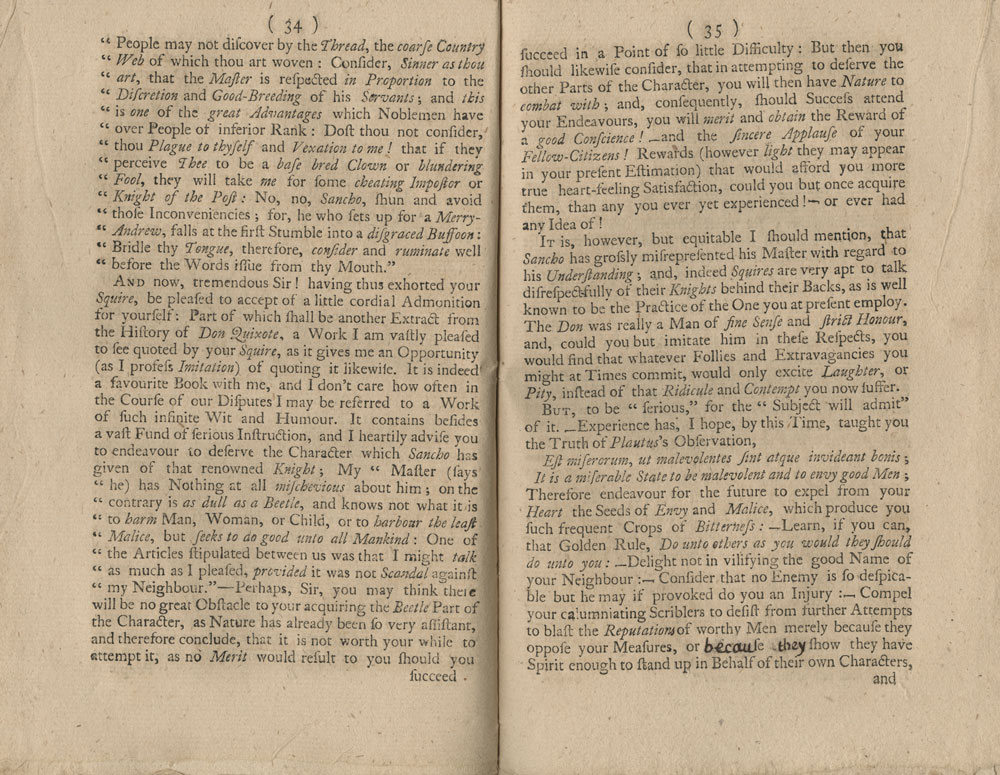 ( 34 )
“ People may not diſcover by the Thread, the coarſe Country
“ Web of which thou art woven : Conſider, Sinner as thou
“ art, that the Maſter is reſpected in Proportion to the
“ Diſcretion and Good-Breeding of his Servants ; and this
“ is one of the great Advantages which Noblemen have
“ over People of inferior Rank : Doſt thou not conſider,
“ thou Plague to thyſelf and Vexation to me ! that if they
“ perceive Thee to be a baſe bred Clown or blundering
“ Fool, they will take me for ſome cheating Impoſtor or
“ Knight of the Poſt : No, no, Sancho, ſhun and avoid
“ thoſe Inconveniencies ; for, he who ſets up for a Merry-
“ Andrew, falls at the firſt Stumble into a diſgraced Buffoon :
“ Bridle thy Tongue, therefore, conſider and ruminate well
“ before the Words iſſue from thy Mouth.”
AND now, tremendous Sir ! having thus exhorted your
Squire, be pleaſed to accept of a little cordial Admonition
for yourſelf : Part of which ſhall be another Extract from
the Hiſtory of Don Quixote, a Work I am vaſtly pleaſed
to ſee quoted by your Squire, as it gives me an Opportunity
(as I profeſs Imitation) of quoting it likewiſe. It is indeed
a favourite Book with me, and I don't care how often in
the Courſe of our Diſputes I may be referred to a Work
of ſuch infinite Wit and Humour. It contains beſides
a vaſt Fund of ſerious Inſtruction, and I heartily adviſe you
to endeavour to deſerve the Character which Sancho has
given of that renowned Knight ; My “ Maſter (ſays
“ he) has Nothing at all miſchevious about him ; on the
“ contrary is as dull as a Beetle, and knows not what it is
“ to harm Man, Woman, or Child, or to harbour the leaſt
“ Malice, but ſeeks to do good unto all Mankind : One of
“ the Articles ſtipulated between us was that I might talk
“ as much as I pleaſed, provided it was not Scandal againſt
“ my Neighbour.”—Perhaps, Sir, you may think there
will be no great Obſtacle to your acquiring the Beetle Part of
the Character, as Nature has already been ſo very aſſiſtant,
and therefore conclude, that it is not worth your while to
attempt it, as no Merit would reſult to you ſhould you
ſucceed
( 35 )
ſucceed in a Point of ſo little Difficulty : But then you
ſhould likewiſe conſider, that in attempting to deſerve the
other Parts of the Character, you will then have Nature to
combat with ; and, conſequently, ſhould Succeſs attend
your Endeavours, you will merit and obtain the Reward of
a good Conſcience ! —and the ſincere Applauſe of your
Fellow-Citizens ! Rewards (however light they may appear
in your preſent Eſtimation) that would afford you more
true heart-feeling Satisfaction, could you but once acquire
them, than any you ever yet experienced !— or ever had
any Idea of !
IT is, however, but equitable I ſhould mention, that
Sancho has groſsly miſrepreſented his Maſter with regard to
his Underſtanding ; and, indeed Squires are very apt to talk
diſreſpectfully of their Knights behind their Backs, as is well
known to be the Practice of the One you at preſent employ.
The Don was really a Man of fine Senſe and ſtrict Honour,
and, could you but imitate him in theſe Reſpects, you
would find that whatever Follies and Extravagancies you
might at Times commit, would only excite Laughter, or
Pity, inſtead of that Ridicule and Contempt you now ſuffer.
BUT, to be “ ſerious,” for the “ Subject will admit”
of it. —Experience has, I hope, by this Time, taught you
the Truth of Plautus's Obſervation,
Eſt miſerorum, ut malevolentes ſint atque invideant bonis ;
It is a miſerable State to be malevolent and to envy good Men ;
Therefore endeavour for the future to expel from your
Heart the Seeds of Envy and Malice, which produce you
ſuch frequent Crops of Bitterneſs : —Learn, if you can,
that Golden Rule, Do unto others as you would they ſhould
do unto you : —Delight not in vilifying the good Name of
your Neighbour :— Conſider that no Enemy is ſo deſpica-
ble but he may if provoked do you an Injury :— Compel
your calumniating Scriblers to deſiſt from further Attempts
to blaſt the Reputations of worthy Men merely becauſe they
oppoſe your Meaſures, or becauſe they ſhow they have
Spirit enough to ſtand up in Behalf of their own Characters,
and